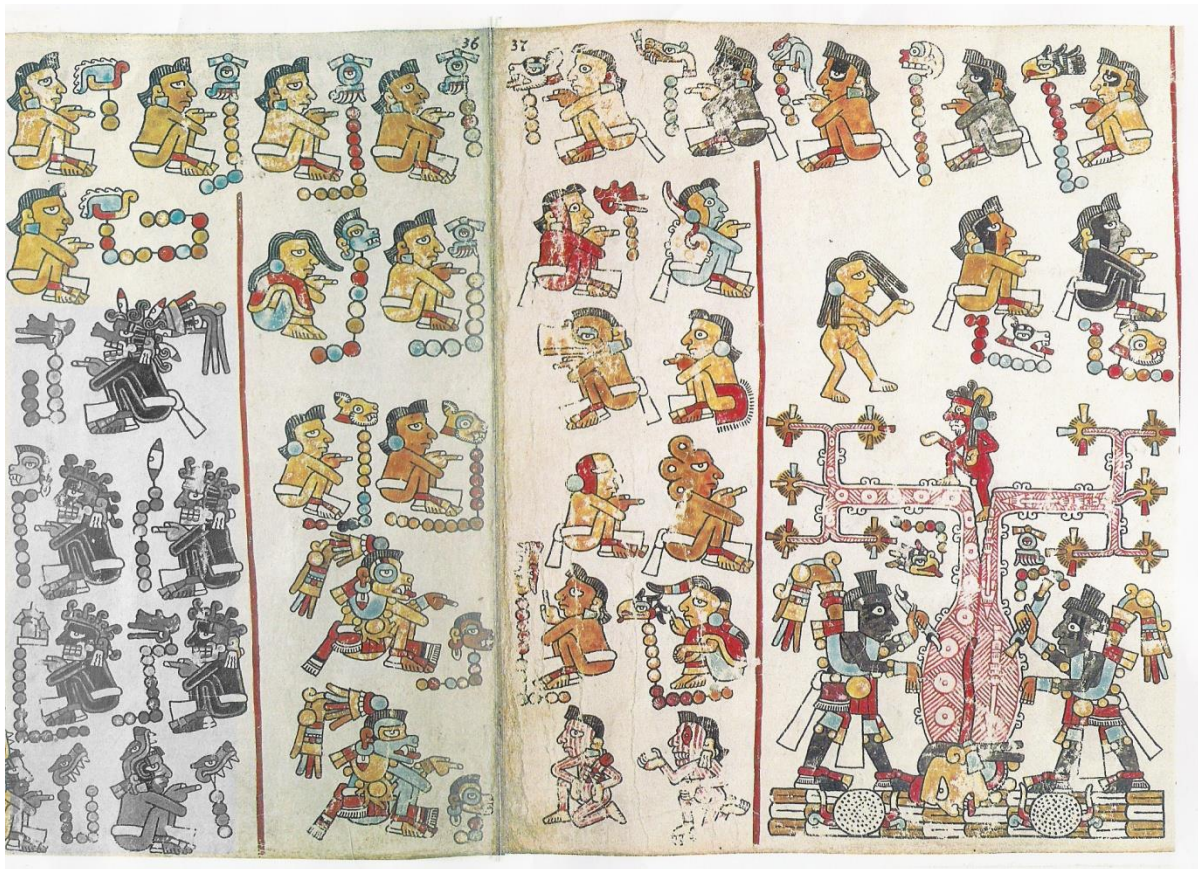 36 37